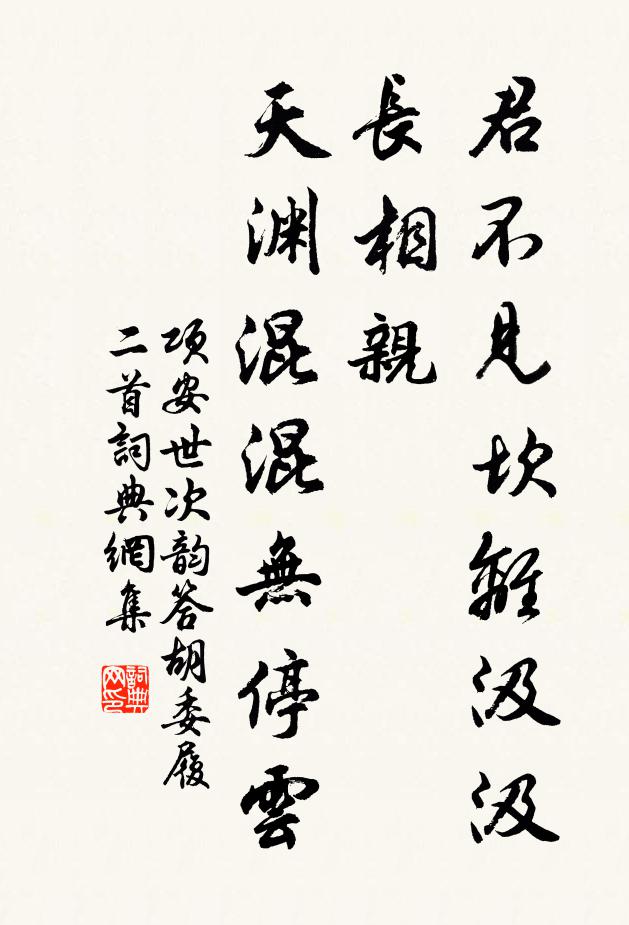 君不見坎離汲汲
長相親
天渊混混無停雲
项安世次韵答胡委履
二首詞典網集
詞典
网印